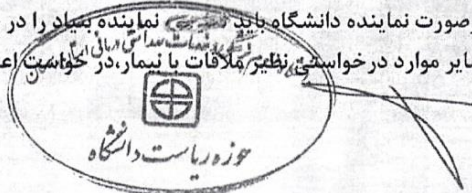 صورت نماینده دانشگاه باید نماینده بنیاد را در
سایر موارد درخواستی نظیر ملاقات با بیمار،در خواست اعـ
حوزه ریاست دانشگاه